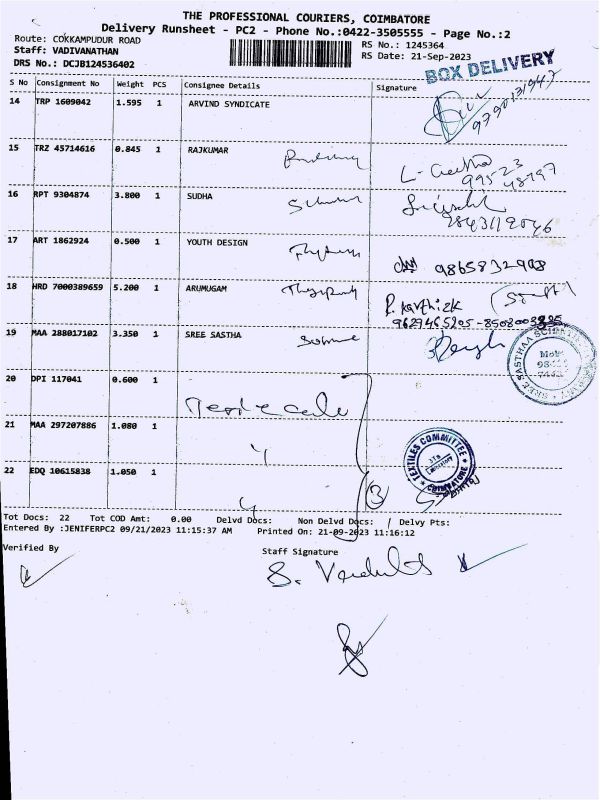 THE PROFESSIONAL COURIERS, COIMBATORE
Delivery Runsheet - PC2 - Phone No.:0422-3505555 - Page No.:2
Route: COKKAMPUDUR ROAD
RS No.: 1245364
Staff: VADIVANATHAN
RS Date: 21-Sep-2023
DRS No.: DCJB124536402
BOX DELIVERY
S No Consignment No Weight PCS Consignee Details Signature
14 TRP 1609042 1.595 1 ARVIND SYNDICATE
9790131947
15 TRZ 45714616 0.845 1 RAJKUMAR
L- Geetha
99523
48797
16 RPT 9304874 3.800 1 SUDHA
17 ART 1862924 0.500 1 YOUTH DESIGN
9865832908
18 HRD 7000389659 5.200 1 ARUMUGAM
R. Karthick
19 MAA 288017102 3.350 1 SREE SASTHA
20 DPI 117041 0.600 1
21 MAA 297207886 1.080 1
TEXTILES COMMITTEE
COIMBATORE
22 EDQ 10615838 1.050 1
3
Tot Docs: 22 Tot COD Amt: 0.00 Delvd Docs: Non Delvd Docs: / Delvy Pts:
Entered By :JENIFERPC2 09/21/2023 11:15:37 AM Printed On: 21-09-2023 11:16:12
Verified By
Staff Signature